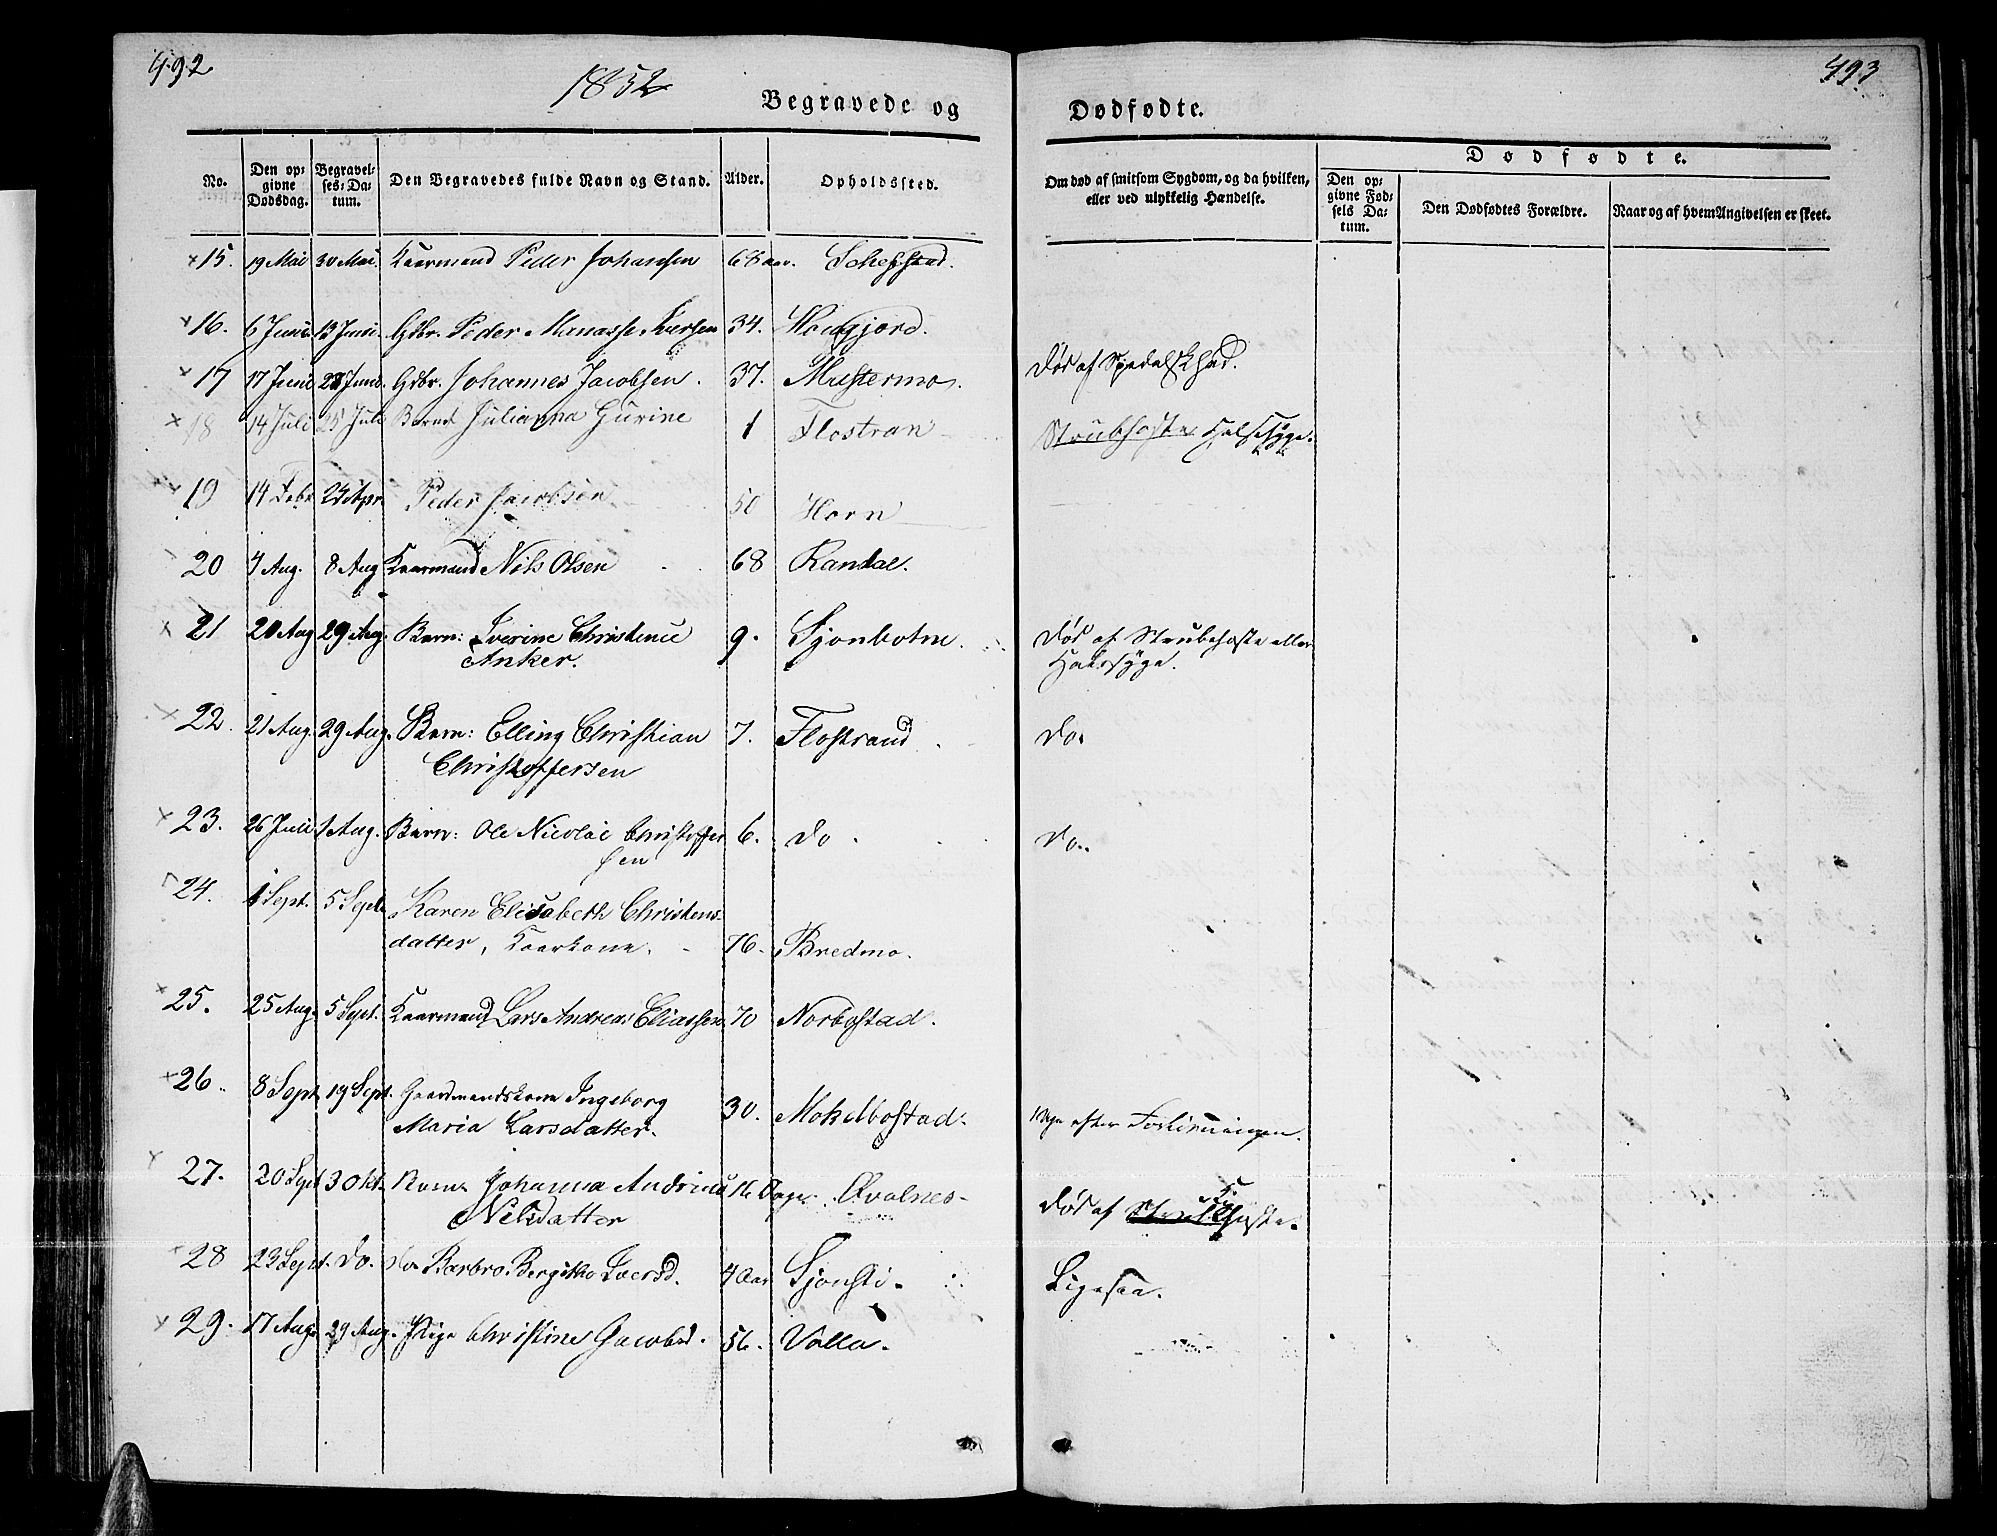 492
1852
Begravede og
No.
Den op-
givne
Dødsdag.
Begravel-
ses-Da-
tum.
Den Begravedes fulde Navn og Stand.
Alder.
Opholdssted.
15. 19 Mai 30 Mai. Kaarmand Peder Johansen 68 aar.
16. 6 Juni 13 Juni. Gdbr. Peder Manasse Iversen 34.
17 17 Juni 27 Juni. Gdbr. Johannes Jacobsen. 37. Mustermo.
18 14 Juli 25 Juli Barnet Julianna Gurine 1 Flostran
19 14 Febr 24 Apr. Peder Jacobsen 50 Horn
20 4 Aug. 8 Aug Kaarmand Nils Olsen 68 Randal.
21 20 Aug 29 Aug. Barn: Iverine Christence 9. Sjonbotn.
Anker.
22. 21 Aug. 29 Aug. Barn: Elling Christian 7. Flostrand
Christoffersen
23. 26 Juli 1 Aug. Barn: Ole Nicolai Christoffer 6. do
sen
24. 1 Sept. 5 Sept. Karen Elisabeth Christens-
datter, Kaarkone. 76. Bredmo.
25. 25 Aug. 5 Sept. Kaarmand Lars Andreas Eliassen 70 Norbostad.
26. 8 Sept 19 Sept. Gaardmandskone Ingeborg
Maria Larsdatter. 30. Mokelbostad.
27. 20 Sept 3 Okt. Barne Johanna Andrine 16 Dage. Øvalnes
Nilsdatter
28 23 Sept. do. do Barbro Bergithe Iversd. 4 Aar Sjonsti.
29. 17 Aug. 29 Aug. Pige Christine Jacobsd. 56. Valla.
493
Dødfødte.
Om død af smitsom Sygdom, og da hvilken,
eller ved ulykkelig Hændelse.
Dødfødte.
Den op-
givne Fød-
sels Da-
tum.
Den Dødfødtes Forældre.
Naar og af hvem Angivelsen er skeet.
Død af Spedalskhed.
Strubehoste Halssyge.
Død af Strubehoste eller
Halssyge.
do.
do.
efter Forløsningen.
Død af
Ligesaa.